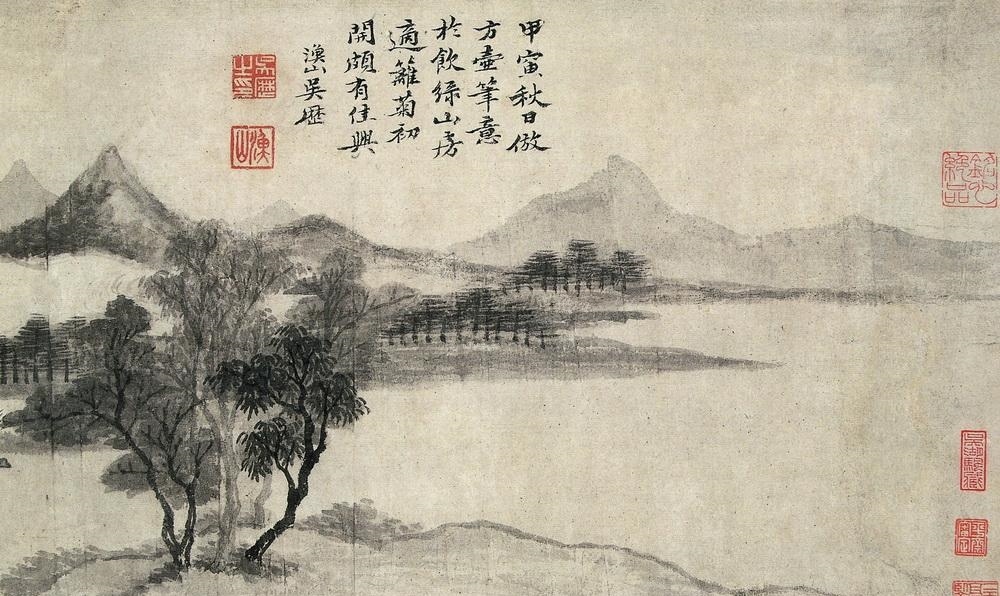 甲寅秋日倣
方壺筆意
於飲綠山房
適籬菊初
開頗有佳興
漁山吳歷
吳歷之印
漁山